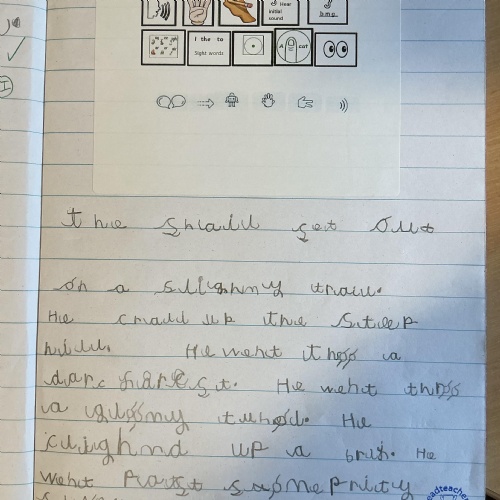 Hear
initial
sound
I the to
Sight words
A cat
the snail set out
on a slighmy trail.
He crall up the steep
hill. He went throo a
darc forest. He went throo
a gloomy tunel. He
clighmd up a brij. He
went past some prity